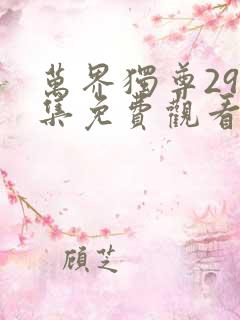 萬界獨尊29
集免費觀看
顧芝